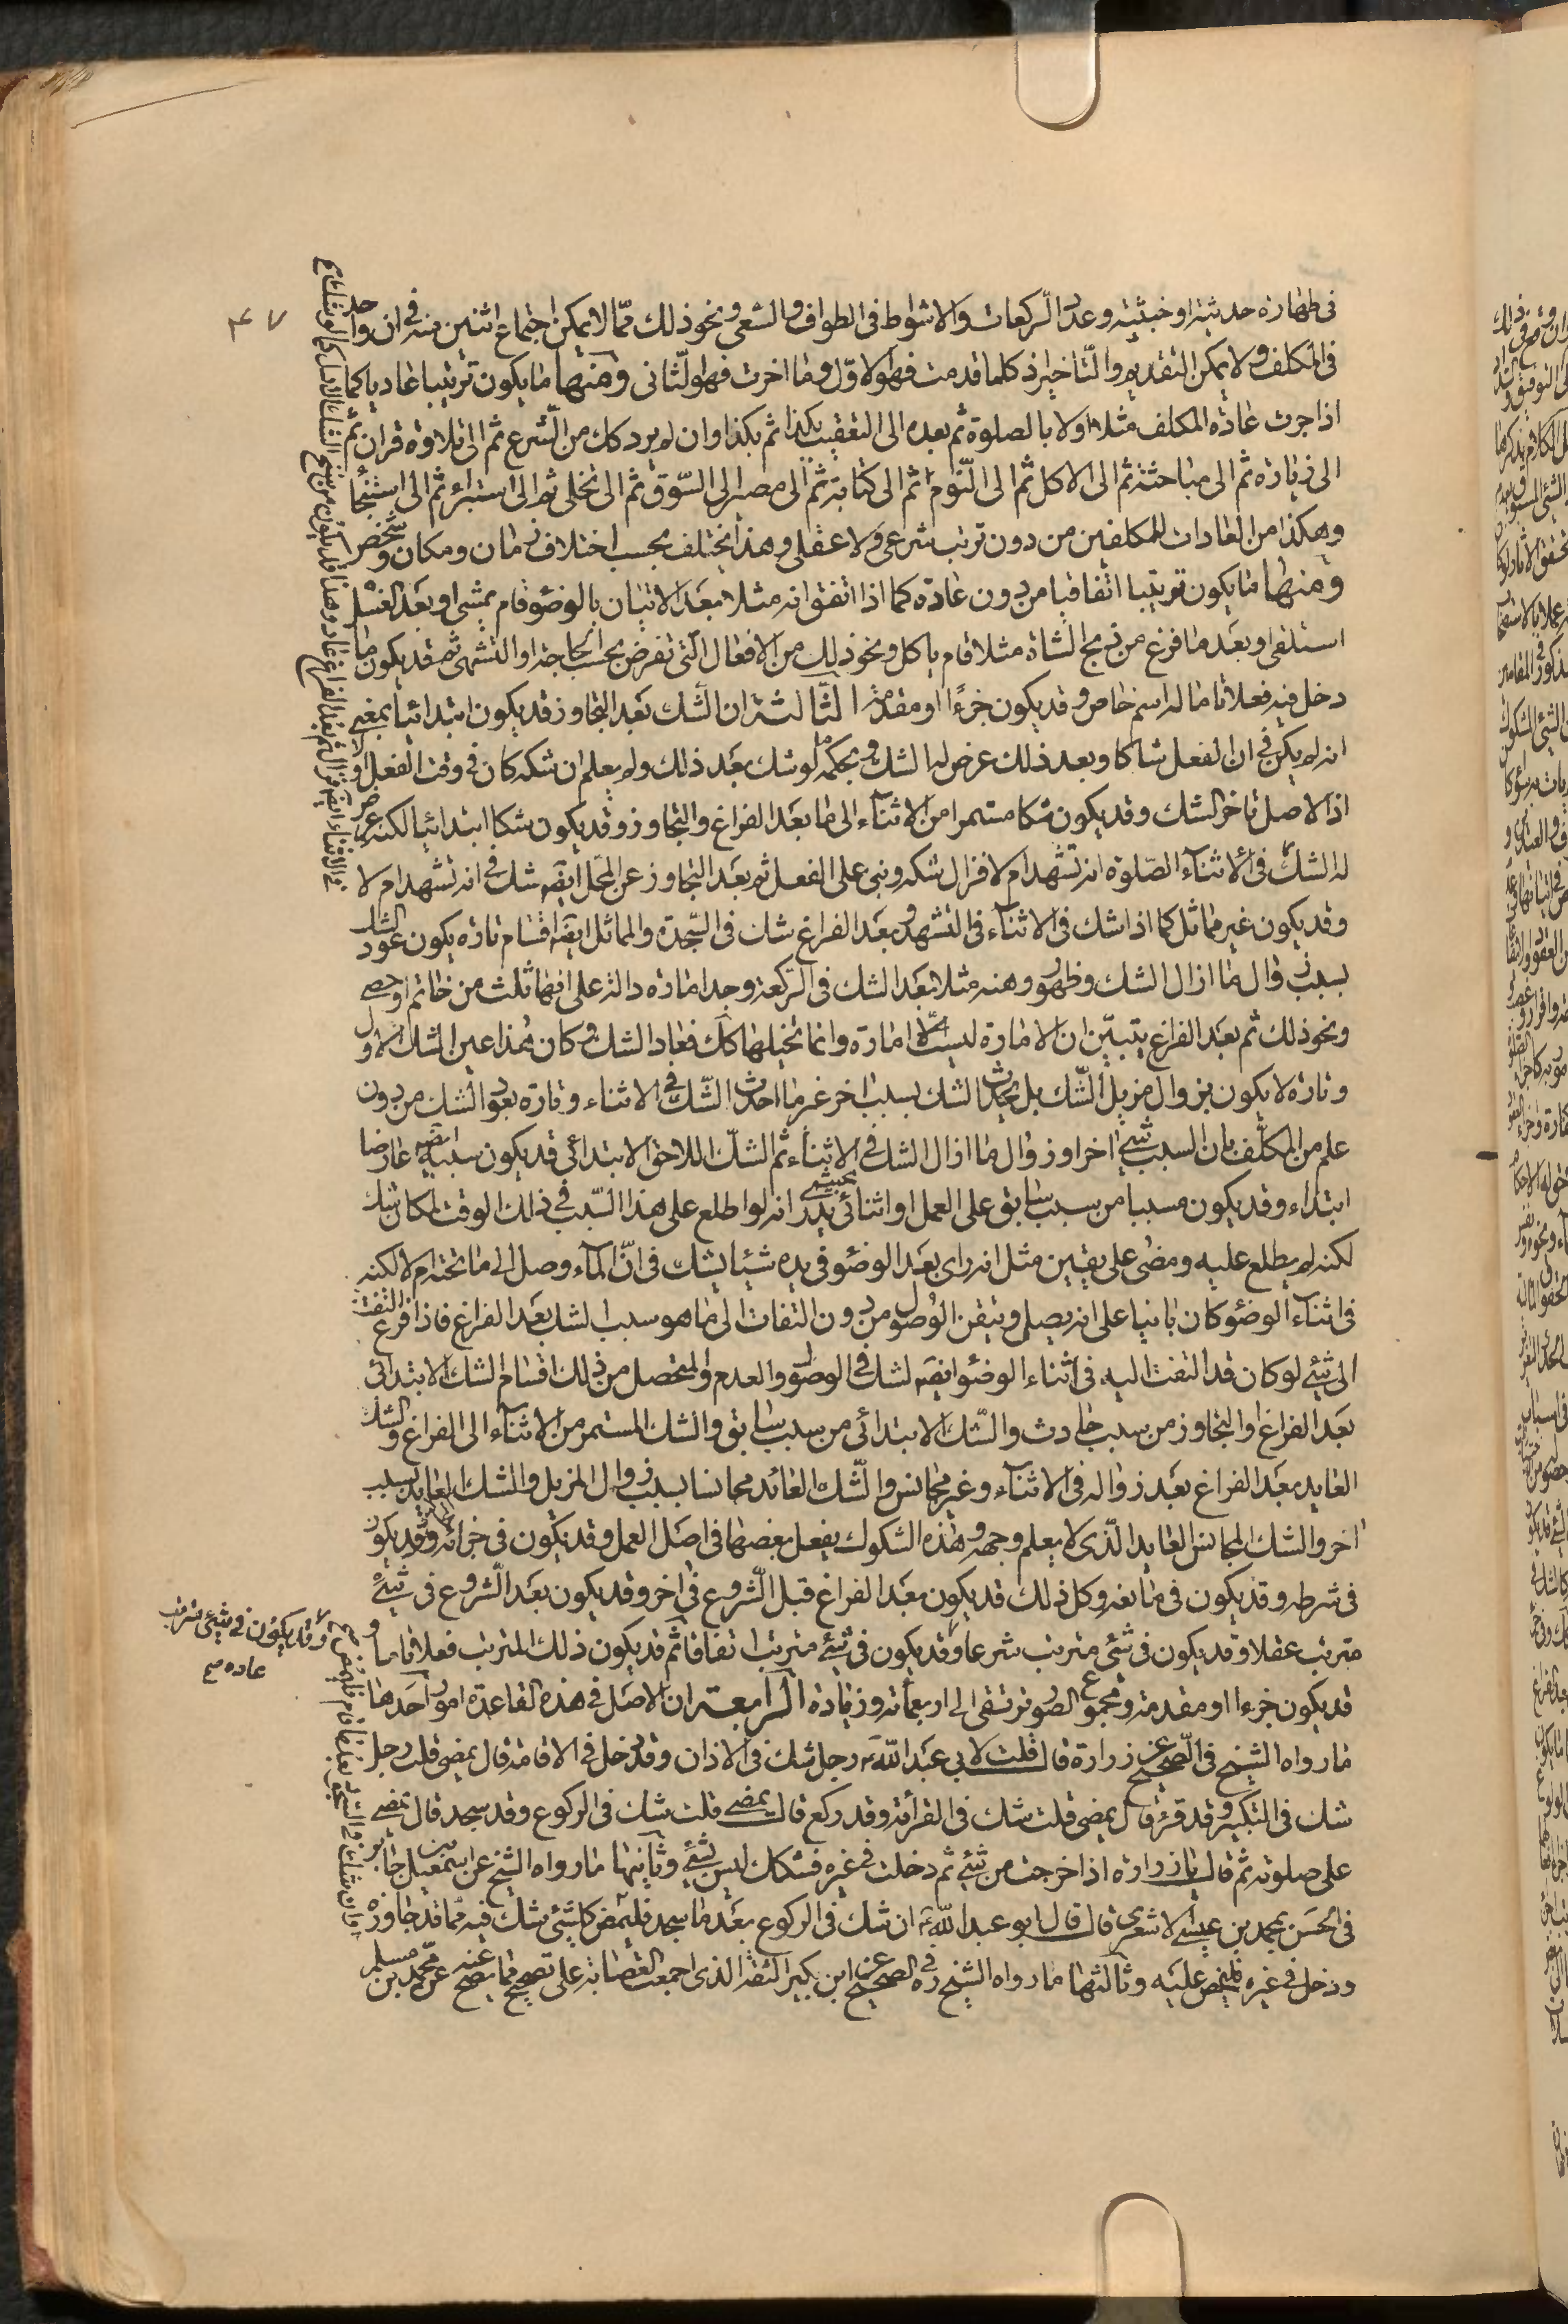 ٤٧
فى طهارة حدثية او خبثية وعدد الركعات والاشواط فى الطواف والسعى ونحو ذلك ممّا لا يمكن اجتماع اثنين منه فى ان واحد
فى المكلف ولا يمكن التقديم والتاخير اذ كلما قدمت فهو الاوّل وما اخرت فهو الثانى ومنها ما يكون ترتيبا عاديا كما
اذا جرت عادة المكلف مثلا اولا بالصلوة ثم بعده الى التعقيب بكذا ثم بكذا وان لم يرد كك من الشرع ثم الى تلاوة قران ثم
الى زيارة ثم الى مباحثة ثم الى الاكل ثم الى النّوم ثم الى كتابة ثم الى مصير الى السّوق ثم الى تخلى ثم الى استبراء ثم الى استنجاء
وهكذا من العادات للمكلفين من دون ترتب شرعى ولا عقلى وهذا يختلف بحسب اختلاف زمان ومكان وشخص
ومنها ما يكون ترتيبا اتفاقيا من دون عادة كما اذا اتفق انه مثلا بعد الاتيان بالوضوء قام يمشى او بعد الغسل
استلقى او بعد ما فرغ من ذبح الشاة مثلا قام ياكل ونحو ذلك من الافعال التى تفرض بحسب الحاجة او التشهى ثم قد يكون ما
دخل فيه فعلا تاما له اسم خاص وقد يكون جزءًا او مقدمة الثالثة ان الشك بعد التجاوز قد يكون ابتدائيا بمعنى
انه لم يكن فى ان الفعل شاكا وبعد ذلك عرض له الشك وبحكمه ما لو شك بعد ذلك ولم يعلم ان شكه كان فى وقت الفعل او لا
اذ الاصل تاخر الشك وقد يكون شكا مستمرا من الاثناء الى ما بعد الفراغ والتجاوز وقد يكون شكا ابتدائيا لكنه عرض
له الشك فى الاثناء الصّلوة انه تشهد ام لا فزال شكه وبنى على الفعل ثم بعد التجاوز عن المحل ايضا شك فى انه تشهد ام لا
وقد يكون غير مماثل كما اذا شك فى الاثناء فى التشهد وبعد الفراغ شك فى السّجدة والمماثل ايضا اقسام تارة يكون عود الشك
بسبب زوال ما ازال الشك وظهور وهنه مثلا بعد الشك فى الركعة وجد امارة دالة على انها ثلث من خاتم او حصى
ونحو ذلك ثم بعد الفراغ يتبيّن ان الامارة ليست امارة وانما تخيلها كك فعاد الشك وكان هذا عين الشك الاول
وتارة لا يكون بزوال مزيل الشّك بل يحدث الشك بسبب اخر غير ما احدث الشّك فى الاثناء وتارة يعود الشك من دون
علم من المكلّف بان السبب شئ اخر او زوال ما ازال الشك فى الاثناء ثم الشكّ اللاحق الابتدائى قد يكون سببه ايضا عارضا
ابتداء وقد يكون مسببا من سبب سابق على العمل او اثنائى بحيث يدرى انه لو اطلع على هذا السّبب فى ذلك الوقت لكان شك
لكنه لم يطلع عليه ومضى على يقين مثل انه راى بعد الوضوء فى يده شيئا يشك فى انّ الماء وصل الى ما تحته ام لا لكنه
فى اثناء الوضوء كان بانيا على انه يصلى وتيقن الوصول من دون التفات الى ما هو سبب الشك بعد الفراغ فاذا فرغ التفت
الى شئ لو كان قد التفت اليه فى اثناء الوضوء ايضا لشك فى الوصول والعدم والمتحصل من ذلك اقسام الشك الابتدائى
بعد الفراغ والتجاوز من سبب حادث والشّك الابتدائى من سبب سابق والشك المستمر من الاثناء الى الفراغ والشك
العايد بعد الفراغ بعد زواله فى الاثناء وغير مجانس والشّك العائد مجانسا بسبب زوال المزيل والشك العايد بسبب
اخر والشك المجانس العايد الّذى لا يعلم وجهه وهذه الشكوك يفعل بعضها فى اصل العمل وقد يكون فى جزئه وقد يكون
فى شرطه وقد يكون فى مانعه وكل ذلك قد يكون بعد الفراغ قبل الشروع فى اخر وقد يكون بعد الشروع فى شئ
مترتب عقلا وقد يكون فى شئ مترتب شرعا وقد يكون فى شئ مترتب اتفاقا ثم قد يكون ذلك المترتب فعلا تاما و
وقد يكون فى شئ مترتب
عادة صح
قد يكون جزءا او مقدمة ومجموع الصور ترتقى الى اربعمائة وزيادة الرابعة ان الاصل فى هذه القاعدة امور احدها
ما رواه الشيخ فى الصحيح عن زرارة قال قلت لابى عبد اللهؑ رجل شك فى الاذان وقد دخل فى الاقامة قال يمضى قلت رجل
شك فى التكبير وقد قرء قال يمضى قلت شك فى القرائة وقد ركع قال يمضى قلت شك فى الركوع وقد سجد قال يمضى
على صلوته ثم قال يا زرارة اذا خرجت من شئ ثم دخلت فى غيره فشكك ليس بشئ وثانيها ما رواه الشيخ عن اسمعيل بن جابر
فى الحسن بمحمد بن عيسى الاشعرى قال قال ابو عبد اللهؑ ان شك فى الركوع بعد ما سجد فليمض كل شئ شك فيه ممّا قد جاوزه
ودخل فى غيره فليمض عليه وثالثها ما رواه الشيخ ره فى الصحيح عن ابن بكير الثقة الذى اجمعت العصابة على تصحيح ما يصح عنه عن محمد بن مسلم